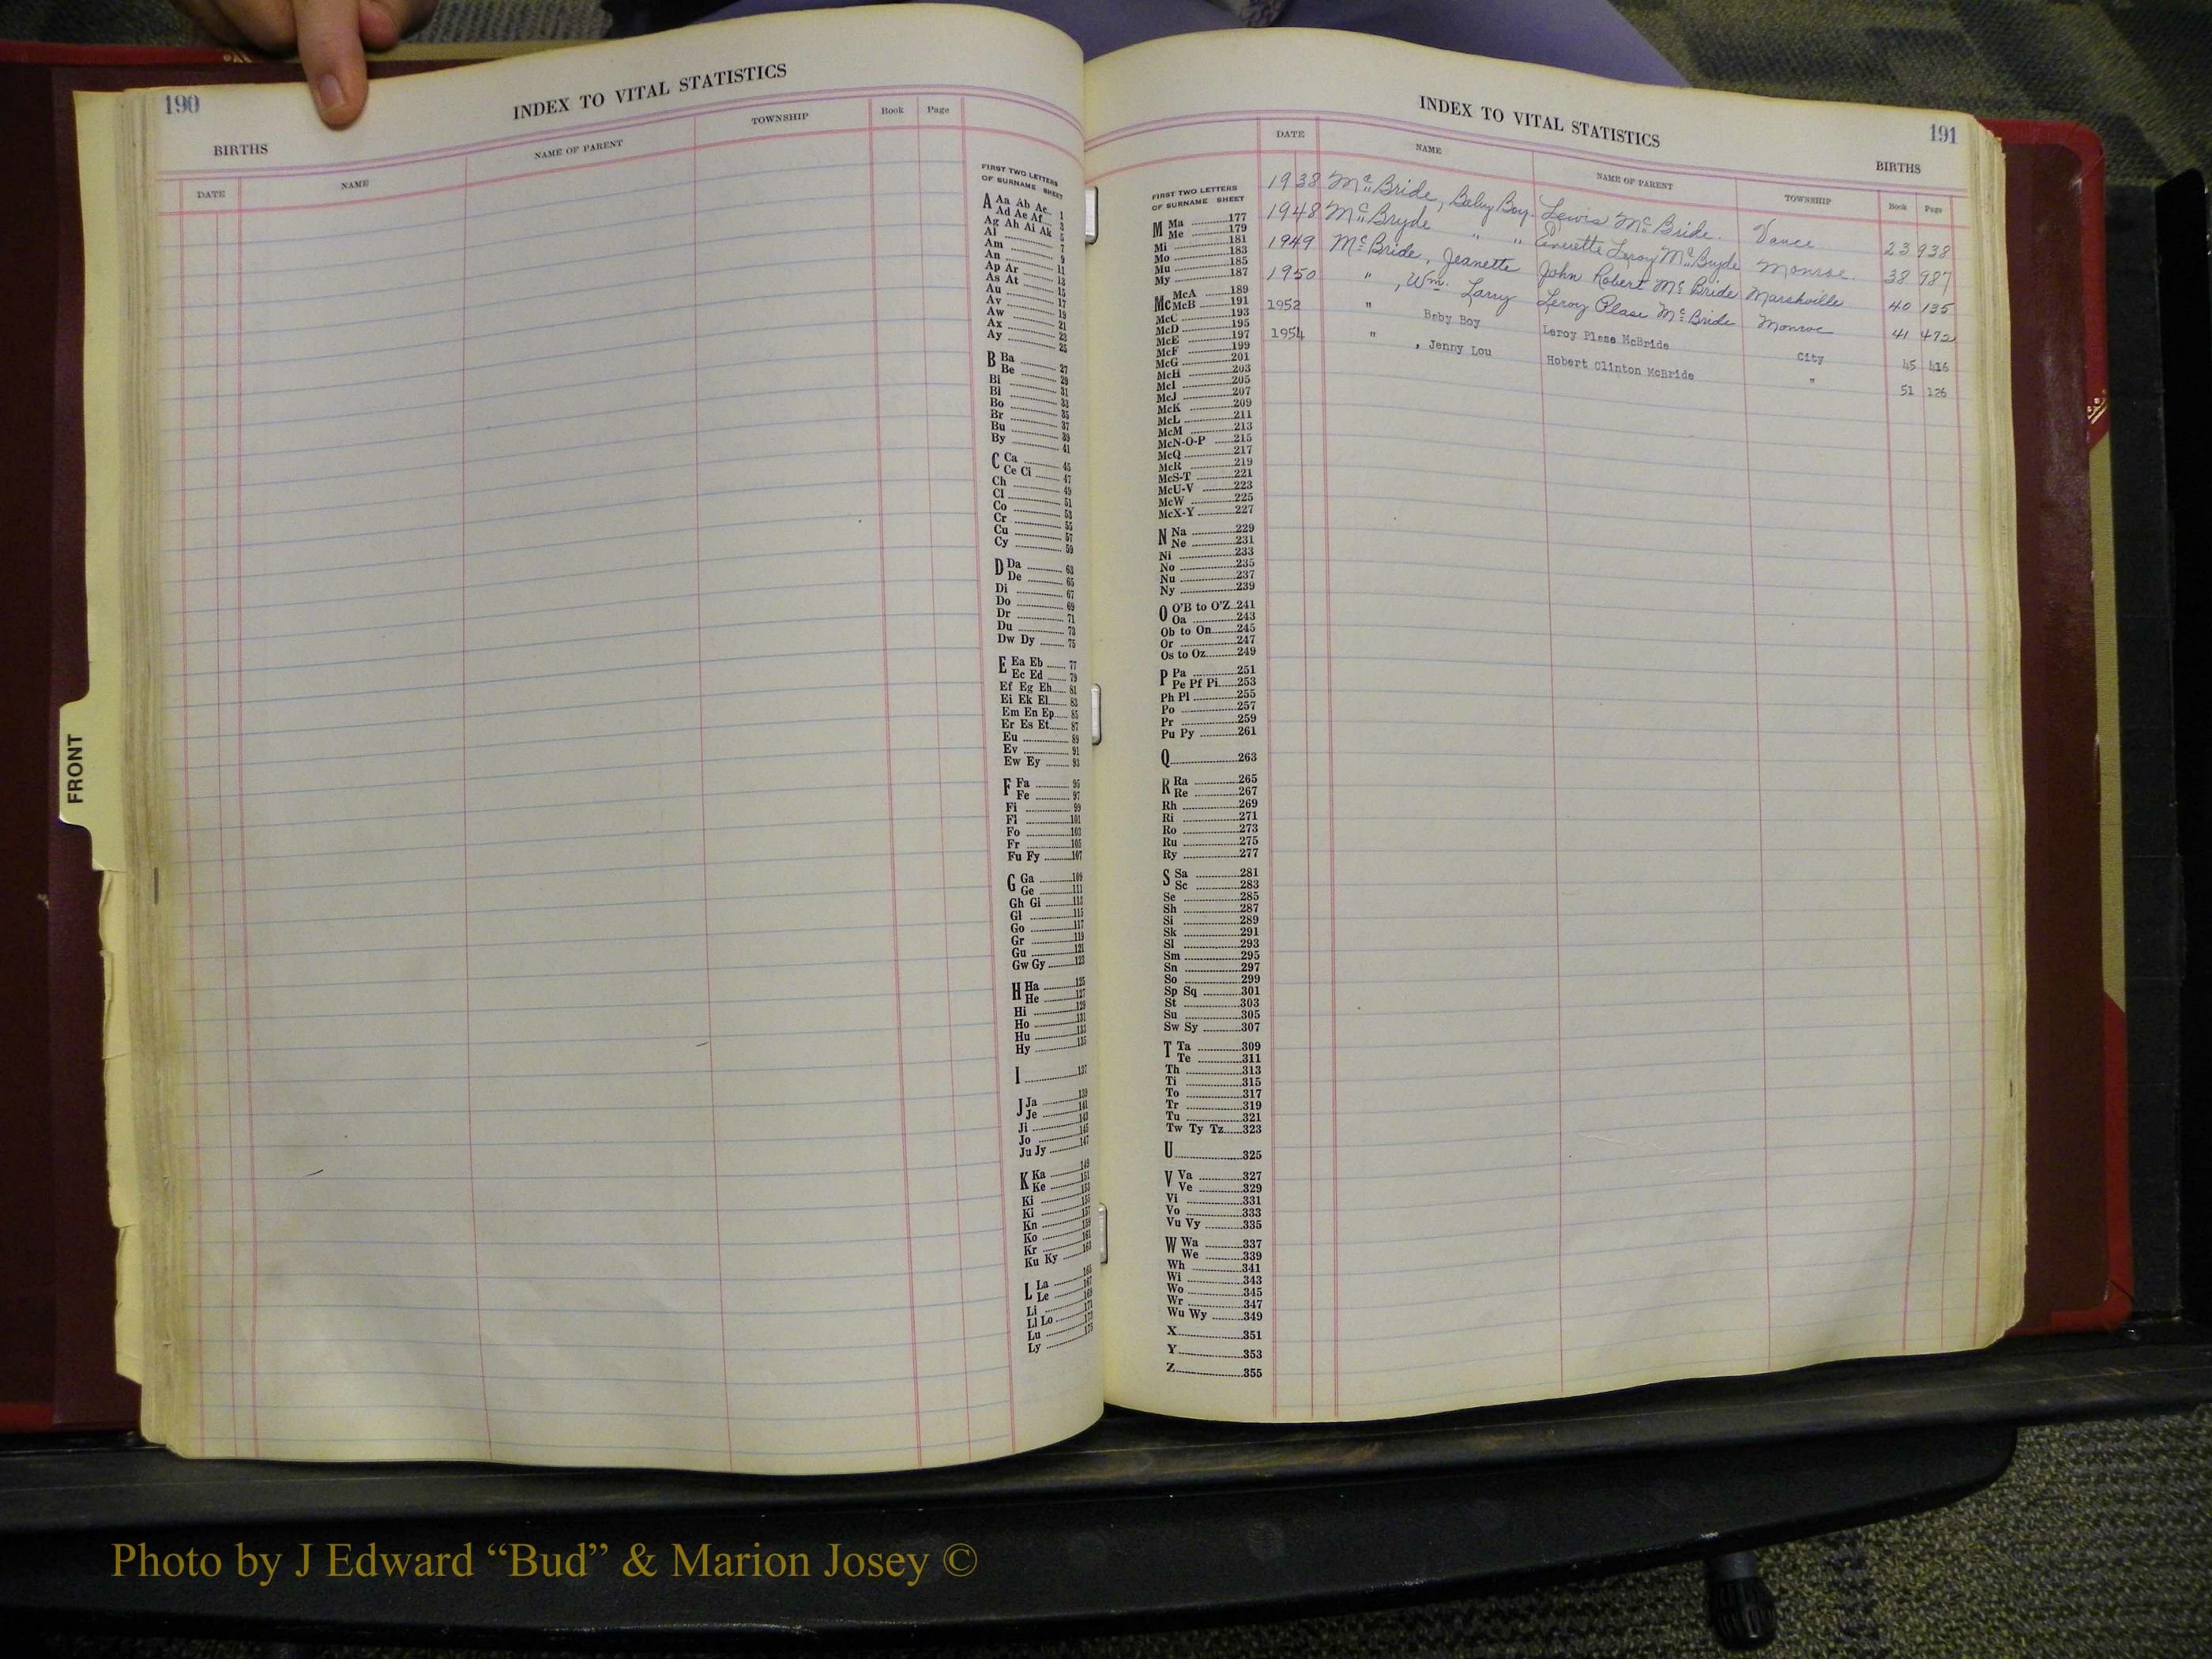 190
INDEX TO VITAL STATISTICS
BIRTHS
DATE NAME NAME OF PARENT TOWNSHIP Book Page
FIRST TWO LETTERS
OF SURNAME SHEET
A Aa Ab Ac 1
Ad Ae Af 3
Ag Ah Ai Ak 5
Al 7
Am 9
An 11
Ap Ar 13
As At 15
Au 17
Av 19
Aw 21
Ax 23
Ay 25
B Ba 27
Be 29
Bi 31
Bl 33
Bo 35
Br 37
Bu 39
By 41
C Ca 45
Ce Ci 47
Ch 49
Cl 51
Co 53
Cr 55
Cu 57
Cy 59
D Da 63
De 65
Di 67
Do 69
Dr 71
Du 73
Dw Dy 75
E Ea Eb 77
Ec Ed 79
Ef Eg Eh 81
Ei Ek El 83
Em En Ep 85
Er Es Et 87
Eu 89
Ev 91
Ew Ey 93
F Fa 95
Fe 97
Fi 99
Fl 101
Fo 103
Fr 105
Fu Fy 107
G Ga 109
Ge 111
Gh Gi 113
Gl 115
Go 117
Gr 119
Gu 121
Gw Gy 123
H Ha 125
He 127
Hi 129
Ho 131
Hu 133
Hy 135
I 137
J Ja 139
Je 141
Ji 143
Jo 145
Ju Jy 147
K Ka 149
Ke 151
Ki 153
Ki 155
Kn 157
Ko 159
Kr 161
Ku Ky 163
L La 165
Le 167
Li 169
Ll Lo 171
Lu 173
Ly 175
FRONT
INDEX TO VITAL STATISTICS
191
BIRTHS
DATE NAME NAME OF PARENT TOWNSHIP Book Page
1938 McBride, Baby Boy Lewis McBride. Vance 23 938
1948 McBryde " " Everette Leroy McBryde Monroe. 38 987
1949 McBride, Jeanette John Robert McBride Marshville 40 135
1950 ", Wm. Larry Leroy Plase McBride Monroe 41 472
1952 " Baby Boy Leroy Plase McBride City 45 416
1954 " , Jenny Lou Hobert Clinton McBride " 51 126
FIRST TWO LETTERS
OF SURNAME SHEET
M Ma 177
Me 179
Mi 181
Mo 183
Mu 185
My 187
Mc McA 189
McB 191
McC 193
McD 195
McE 197
McF 199
McG 201
McH 203
McI 205
McJ 207
McK 209
McL 211
McM 213
McN-O-P 215
McQ 217
McR 219
McS-T 221
McU-V 223
McW 225
McX-Y 227
N Na 229
Ne 231
Ni 233
No 235
Nu 237
Ny 239
O O'B to O'Z 241
Oa 243
Ob to On 245
Or 247
Os to Oz 249
P Pa 251
Pe Pf Pi 253
Ph Pl 255
Po 257
Pr 259
Pu Py 261
Q 263
R Ra 265
Re 267
Rh 269
Ri 271
Ro 273
Ru 275
Ry 277
S Sa 281
Sc 283
Se 285
Sh 287
Si 289
Sk 291
Sl 293
Sm 295
Sn 297
So 299
Sp Sq 301
St 303
Su 305
Sw Sy 307
T Ta 309
Te 311
Th 313
Ti 315
To 317
Tr 319
Tu 321
Tw Ty Tz 323
U 325
V Va 327
Ve 329
Vi 331
Vo 333
Vu Vy 335
W Wa 337
We 339
Wh 341
Wi 343
Wo 345
Wr 347
Wu Wy 349
X 351
Y 353
Z 355
Photo by J Edward “Bud” & Marion Josey ©